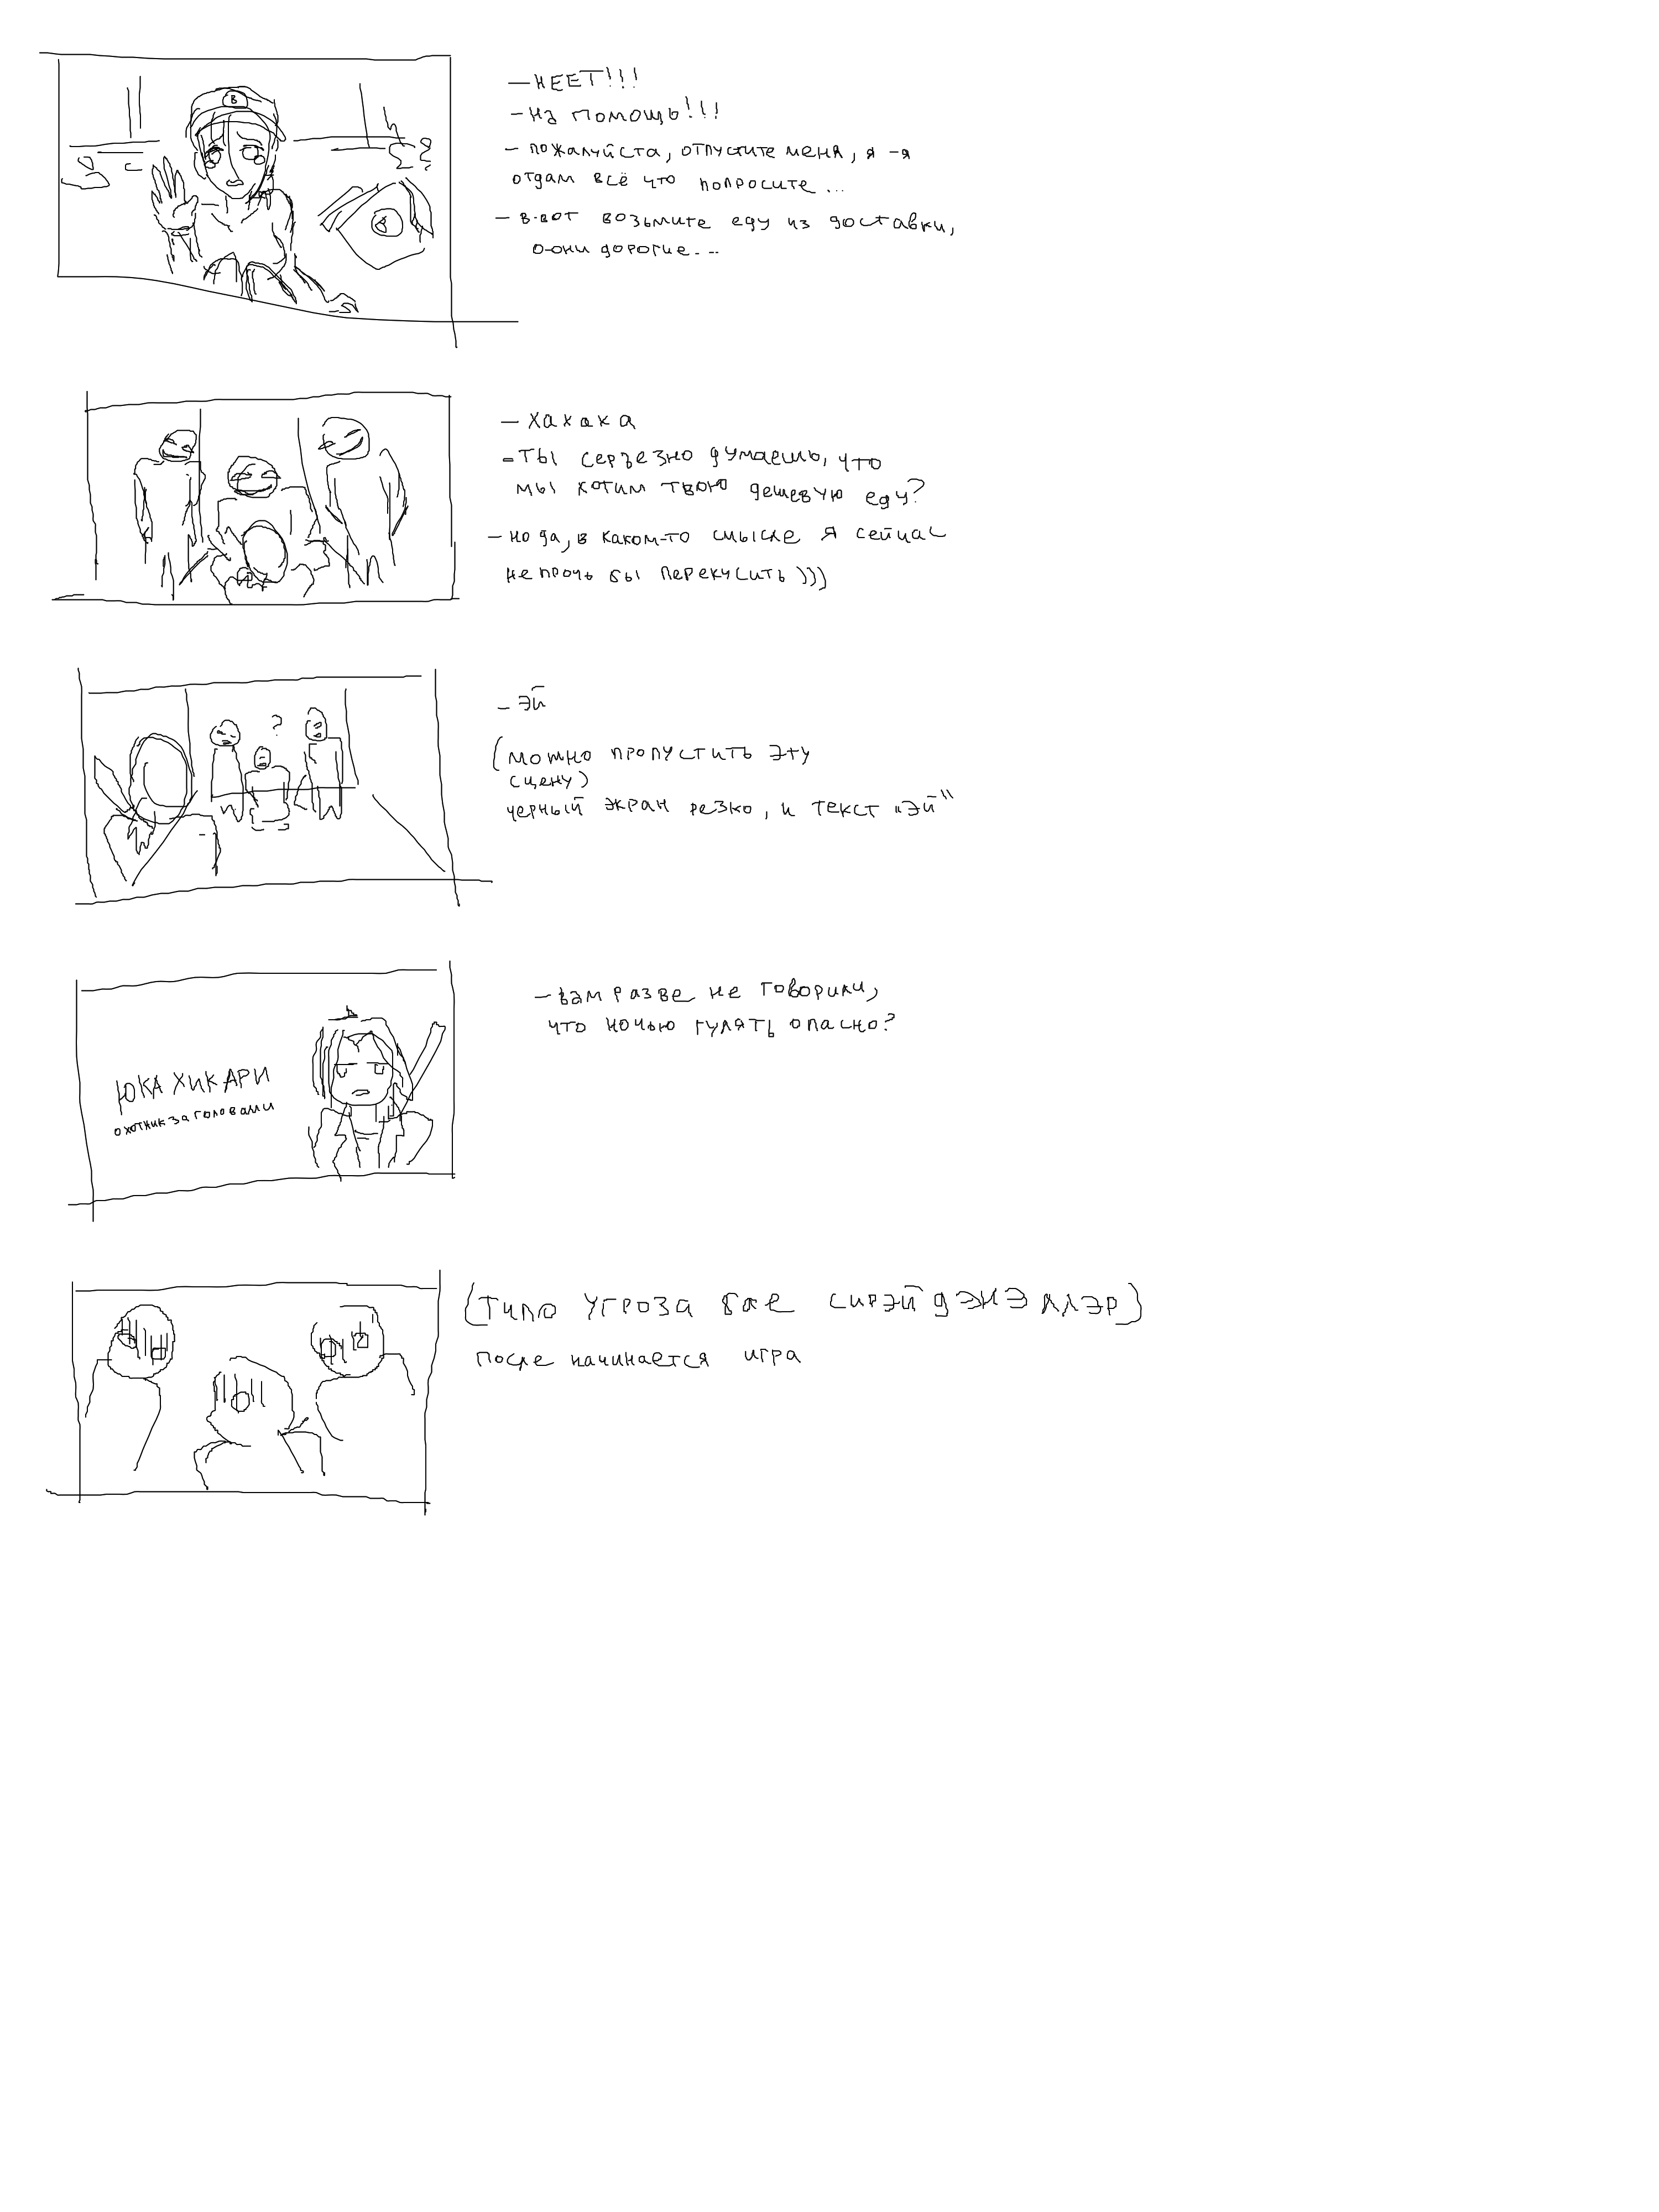 В
— НЕЕТ!!!
— На помощь!!!
— пожалуйста, отпустите меня, я-я
отдам всё что попросите...
— в-вот возьмите еду из доставки,
о-они дорогие...
— Хахаха
— Ты серьезно думаешь, что
мы хотим твою дешевую еду?
— но да, в каком-то смысле я сейчас
не прочь бы перекусить )))
?
— эй
(можно пропустить эту
сцену)
черный экран резко, и текст „эй“
ЮКА ХИКАРИ
охотник за головами
— вам разве не говорили,
что ночью гулять опасно?
(Типо угроза бле сирэй дэнэ ллэр)
после начинается игра